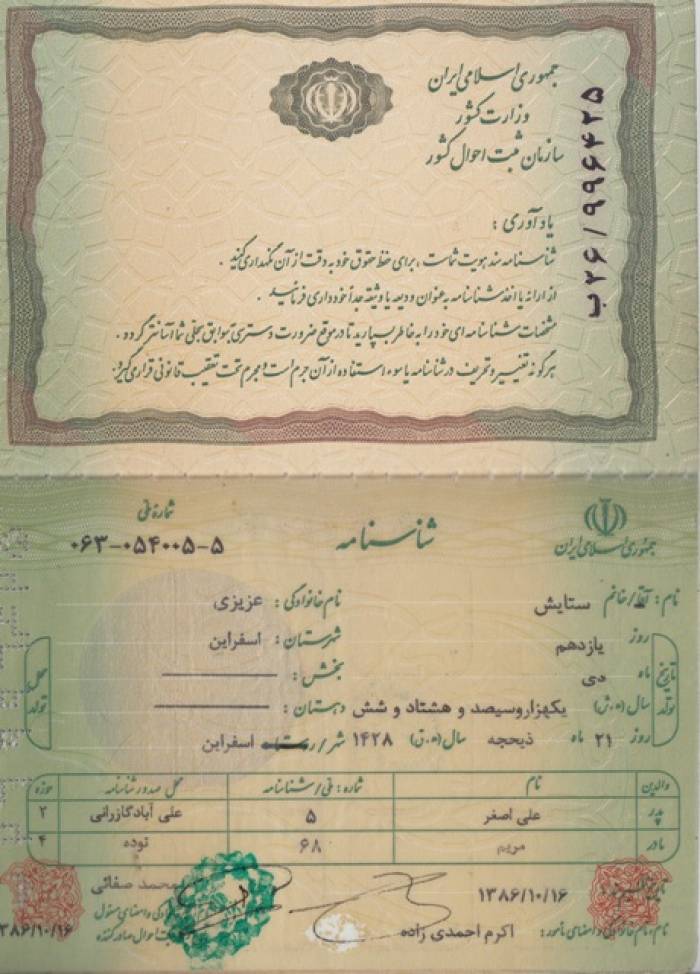 جمهوری اسلامی ایران
وزارت کشور
سازمان ثبت احوال کشور
ب۲۶/۹۹۶۴۲۵
یادآوری :
شناسنامه سند هویت شماست ، برای حفظ حقوق خود به دقت از آن نگهداری کنید .
از ارائه یا اخذ شناسنامه به عنوان ودیعه یا وثیقه جداً خودداری فرمائید .
مشخصات شناسنامه ای خود را به خاطر بسپارید تا در موقع ضرورت دسترسی به سوابق سجلی شما آسانتر گردد .
هرگونه تغییر و تحریف در شناسنامه یا سوء استفاده از آن جرم است و مجرم تحت تعقیب قانونی قرار می گیرد.
جمهوری اسلامی ایران
شناسنامه
شماره ملی
۰۶۳-۰۵۴۰۰۵-۵
نام : آقا/خانم ستایش نام خانوادگی : عزیزی
تاریخ تولد
روز یازدهم شهرستان : اسفراین
ماه دی بخش :
سال (ه.ش) یکهزاروسیصد و هشتاد و شش دهستان :
روز ۲۱ ماه ذیحجه سال (ه.ق) ۱۴۲۸ شهر/روستا اسفراین
محل تولد
والدین نام شماره : ملی/شناسنامه محل صدور شناسنامه حوزه
پدر علی اصغر ۵ علی آبادگازرانی ۲
مادر مریم ۶۸ توده ۴
۱۳۸۶/۱۰/۱۶ محمد صفائی
نام،نام خانوادگی و امضای مأمور: اکرم احمدی زاده
۳۸۶/۱۰/۱۶